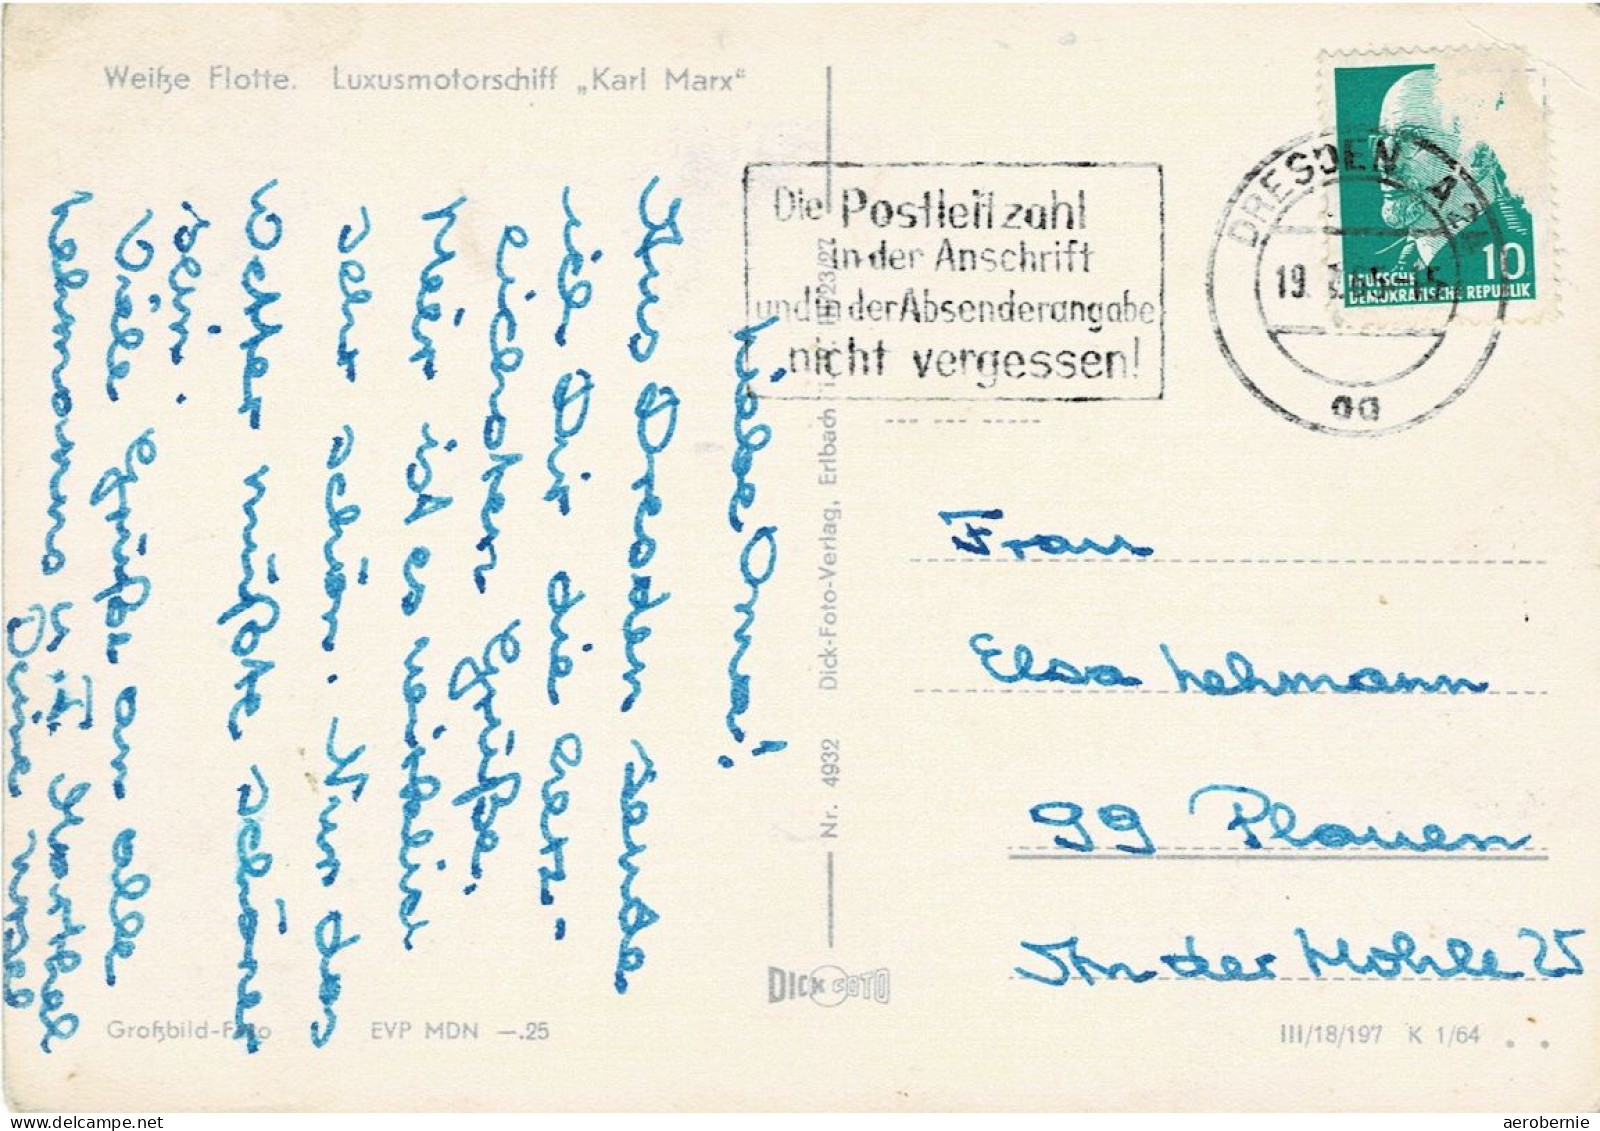 Weiße Flotte. Luxusmotorschiff „Karl Marx“
Liebe Oma!
Aus Dresden sende
ich Dir die herz-
lichsten Grüße.
Hier ist es wirklich
sehr schön. Nur das
Wetter müßte schöner
sein.
Viele Grüße an alle
Lehmanns u.
Deine
Großbild-Foto
EVP MDN —.25
Nr. 4932 Dick-Foto-Verlag, Erlbach i.
DICK FOTO
Die Postleitzahl
in der Anschrift
und in der Absenderangabe
nicht vergessen!
DRESDEN A 24
19.
10
DEUTSCHE
DEMOKRATISCHE REPUBLIK
Frau
Elsa Lehmann
99 Plauen
An der Mohle 25
III/18/197 K 1/64
aerobernie